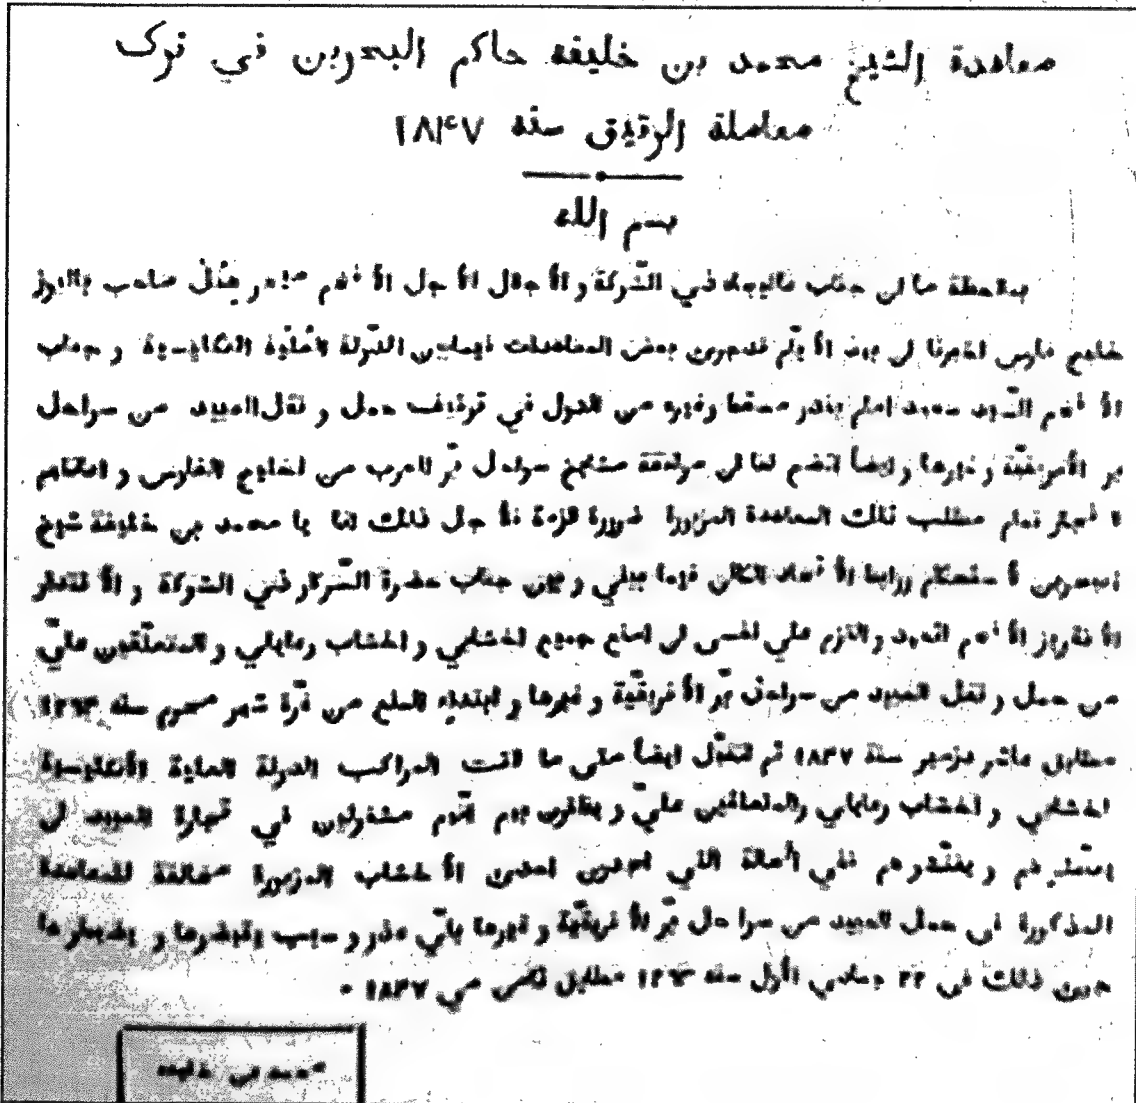 معاهدة الشيخ محمد بن خليفه حاكم البحرين في ترك
معاملة الرقيق سنه ١٨۴٧
بسم الله
بملاحظة ان جناب في الشّوكة و الأجلال الأجل الأفخم ميجر هنل صاحب باليوز
خليج فارس اخبرنا ان الأيّام قد جرى بعض المعاهدات فيمابين الدّولة العليّة انكليسية و جناب
الأفخم السّيد سعيد امام بندر مسقط وغيره من الدول في توقيف حمل و نقل العبيد من سواحل
بر الأفريقيّة و غيرها و ايضاً لنا ان موافقة مشايخ سواحل برّ العرب من الخليج الفارس و
تمام مطلب تلك المعاهدة المزبورة ضرورة لازمة فلأجل ذلك انا يا محمد بن خليفة شيخ
البحرين لأستحكام روابط الأتحاد الكائن فيما بيني و بين جناب حضرة السّركار ذي الشوكة و الأقتدار
الأفخم و التزم علي نفسى ان امنع جميع اخشابي و اخشاب رعاياي و المتعلّقين عليّ
من حمل و نقل العبيد من سواحل برّ الأفريقيّة و غيرها و ابتداء المنع من غرّة شهر محرم سنه ١٢٦۴
مطابق عاشر دزمبر سنة ١٨۴٧ ثم نتقبّل ايضاً متى ما المراكب الدولة العلية الأنكليسية
اخشابي و اخشاب رعاياي والمتعلقين عليّ و يظنون بهم انّهم مشغولين في تجارة العبيد ان
هم ففي الحالة التي احدى الأخشاب المزبورة مخالفة للمعاهدة
المذكورة فى حمل العبيد من سواحل برّ الأفريقيّة و غيرها بأيّ عذر و سبب و
جرى ذلك فى ٢٢ جمادي الأول سنه ١٢٦٣ مطابق ثامن مي ١٨۴٧ •
محمد بن خليفه